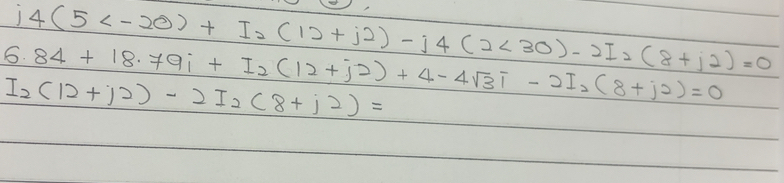 j4(5<-20) + I₂(12+j2) - j4(2<30) - 2I₂(8+j2)=0
6.84 + 18.79i + I₂(12+j2) + 4-4√3i - 2I₂(8+j2)=0
I₂(12+j2) - 2I₂(8+j2) =